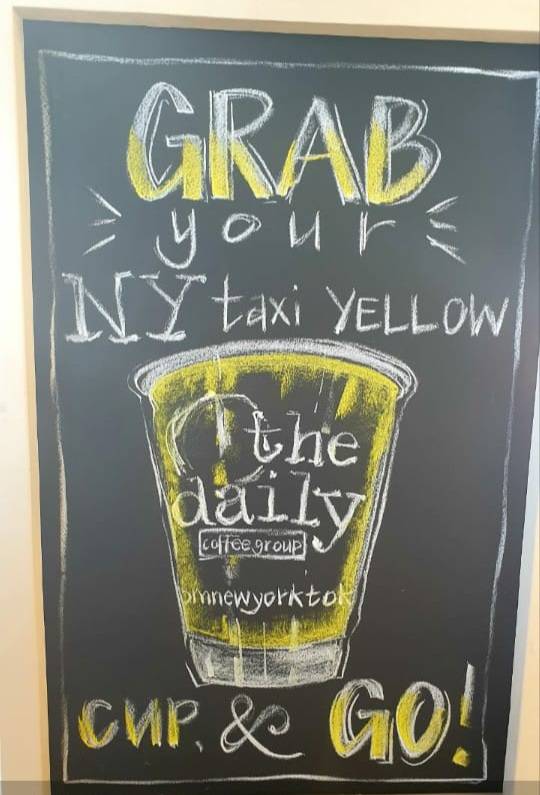 GRAB
your
NY taxi YELLOW
the
daily
coffee group
mnewyorktok
CUP. & GO!